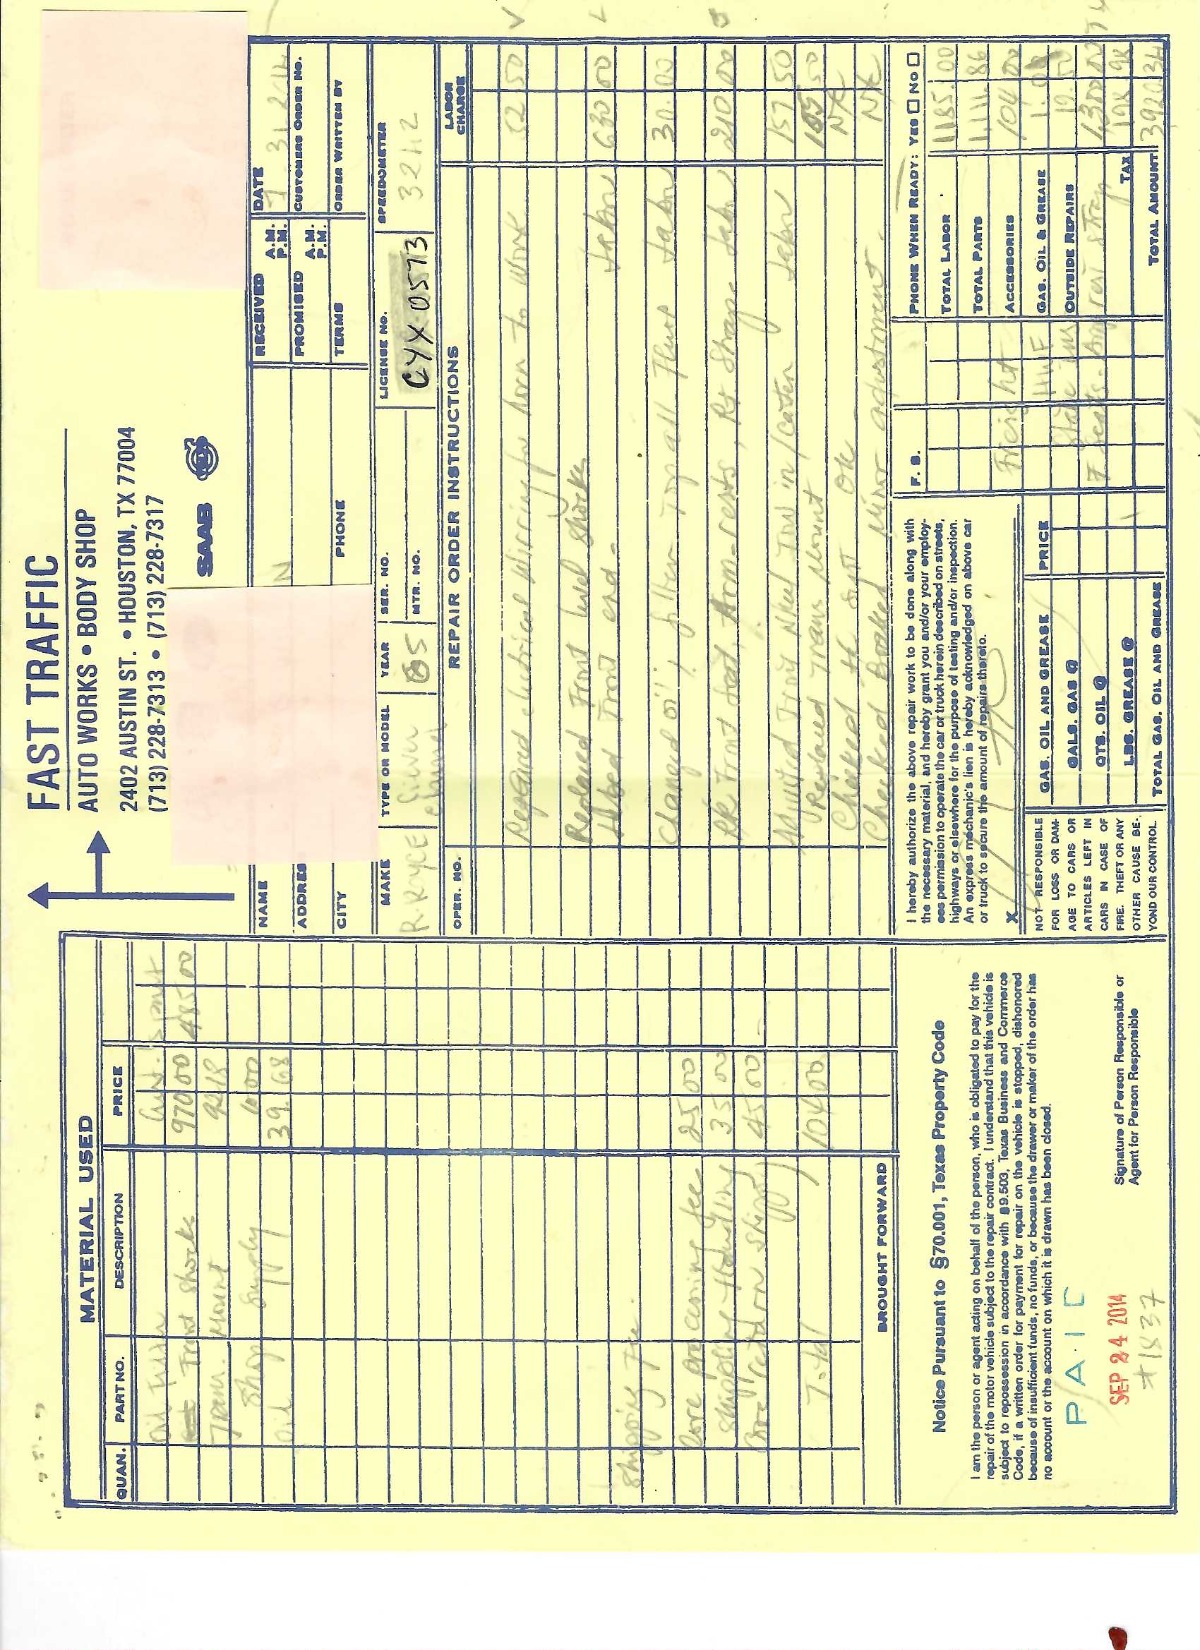 FAST TRAFFIC
AUTO WORKS • BODY SHOP
2402 AUSTIN ST. • HOUSTON, TX 77004
(713) 228-7313 • (713) 228-7317
SAAB
MATERIAL USED
QUAN. PART NO. DESCRIPTION PRICE
Oil Filter
Front Shocks 970 00 485 00
Trans. Mount 92 18
Shop Supply 10 00
Oil 39.68
Shipping Fee.
Core processing fee 25 00
Shipping + Handling 35 00
Core return shipping 45 00
Total 104.00
BROUGHT FORWARD
Notice Pursuant to §70.001, Texas Property Code
I am the person or agent acting on behalf of the person, who is obligated to pay for the
repair of the motor vehicle subject to the repair contract. I understand that this vehicle is
subject to repossession in accordance with §9.503, Texas Business and Commerce
Code, if a written order for payment for repair on the vehicle is stopped, dishonored
because of insufficient funds, no funds, or because the drawer or maker of the order has
no account or the account on which it is drawn has been closed.
PAID
SEP 24 2014
#1837
Signature of Person Responsible or
Agent for Person Responsible
NAME RECEIVED A.M. P.M. DATE
7 31 2014
ADDRES PROMISED A.M. P.M. CUSTOMERS ORDER NO.
CITY PHONE TERMS ORDER WRITTEN BY
MAKE TYPE OR MODEL YEAR SER. NO. LICENSE NO. SPEEDOMETER
MTR. NO.
R Royce Silver 05 CYX 0573 32112
OPER. NO. REPAIR ORDER INSTRUCTIONS LABOR CHARGE
Repaired electrical wiring for horn to work. 52 50
Replaced Front level shocks
Front end. Labor 630 00
Changed oil & filter Top all Fluids Labor 30.00
Front seat Arm-rests, Rt Strap. Labor 210.00
Labor 157 50
Replaced Trans Mount 105 50
Checked the Ok N/C
Checked Minor adjustment. N/C
I hereby authorize the above repair work to be done along with
the necessary material, and hereby grant you and/or your employ-
ees permission to operate the car or truck herein described on streets,
highways or elsewhere for the purpose of testing and/or inspection.
An express mechanic's lien is hereby acknowledged on above car
or truck to secure the amount of repairs thereto.
X
NOT RESPONSIBLE
FOR LOSS OR DAM-
AGE TO CARS OR
ARTICLES LEFT IN
CARS IN CASE OF
FIRE, THEFT OR ANY
OTHER CAUSE BE-
YOND OUR CONTROL.
GAS, OIL AND GREASE PRICE
GALS. GAS @
QTS. OIL @
LBS. GREASE @
TOTAL GAS, OIL AND GREASE
F. S. PHONE WHEN READY: YES NO
TOTAL LABOR 1185.00
TOTAL PARTS 1111.86
Freight ACCESSORIES 104 00
HWF GAS, OIL & GREASE
State Ins OUTSIDE REPAIRS
1,300 00
TAX 198 98
TOTAL AMOUNT 3920 34